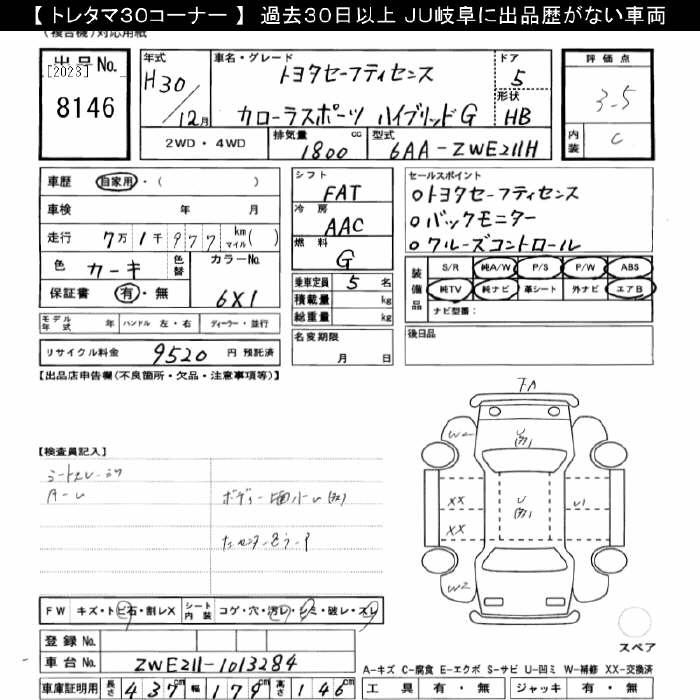 【 トレタマ30コーナー 】 過去30日以上 JU岐阜に出品歴がない車両
(複合機)対応用紙
出品No. [2023] 8146
年式 H30/12月
車名・グレード トヨタセーフティセンス
カローラスポーツ ハイブリッドG
ドア 5
形状 HB
評価点 3.5
内装 C
2WD・4WD
排気量 1800 cc
型式 6AA-ZWE211H
車歴 自家用・( )
車検 年 月
走行 7万1千977 km マイル ( )
色 カーキ 色替
カラーNo. 6X1
保証書 有・無
シフト FAT
冷房 AAC
燃料 G
乗車定員 5 名
積載量 kg
総重量 kg
セールスポイント
○トヨタセーフティセンス
○バックモニター
○クルーズコントロール
装備品 S/R 純A/W P/S P/W ABS
純TV 純ナビ 革シート 外ナビ エアB
ナビ型番:
モデル年式 年 ハンドル 左・右 ディーラー・並行
名変期限 月 日
後日品
リサイクル料金 9520 円 預託済
【出品店申告欄(不良箇所・欠品・注意事項等)】
【検査員記入】
FW キズ・トビ石・割レX シート内装 コゲ・穴・汚レ・シミ・破レ・スレ
登録No.
車台No. ZWE211-1013284
車庫証明用 長さ 437cm 幅 179cm 高さ 146cm
W2
U
XX
U
U1
XX
W2
スペア
A-キズ C-腐食 E-エクボ S-サビ U-凹ミ W-補修 XX-交換済
工具 有・無 ジャッキ 有・無